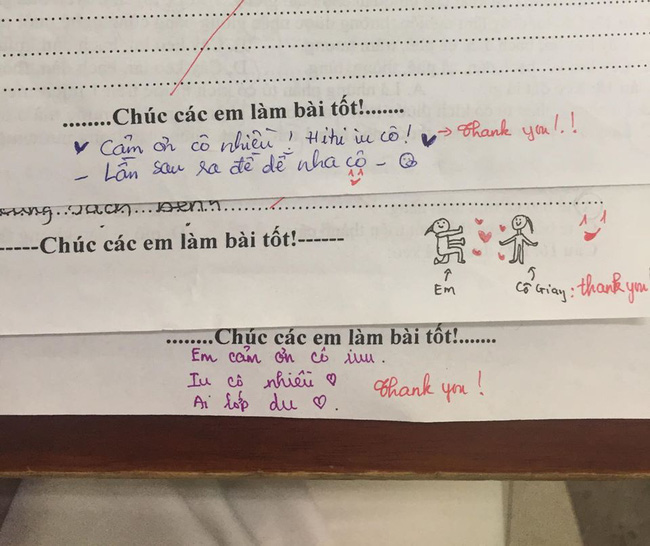 .........Chúc các em làm bài tốt!.......
Cảm ơn cô nhiều! Hihi iu cô! → Thank you!!
- Lần sau ra đề dễ nha cô -
-----Chúc các em làm bài tốt!------
Em Cô Giay: thank you!
........Chúc các em làm bài tốt!.......
Em cảm ơn cô iuu.
Iu cô nhiều ♡ Thank you!
Ai lốp du ♡.